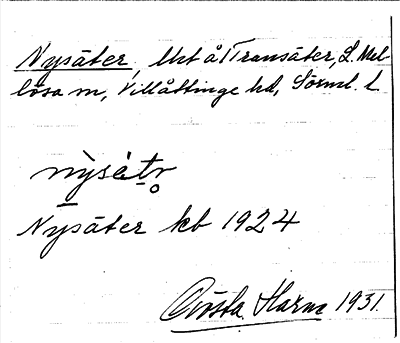 Nysäter, lht å Transäter, L. Mel-
lösa sn, Villåttinge hd, Sörml. l.
nysätr
Nysäter kb 1924
Gösta Harne 1931.